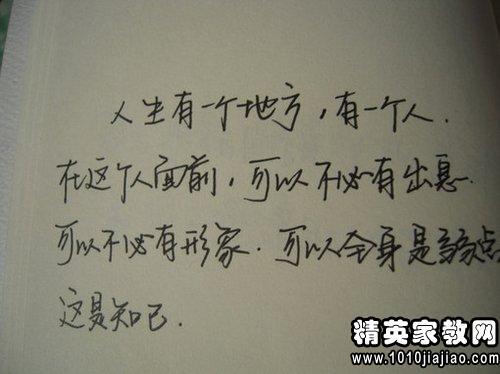 人生有一个地方，有一个人.
在这个人面前，可以不必有出息.
可以不必有形象.可以全身是弱点
这是知己.
精英家教网
www.1010jiajiao.com